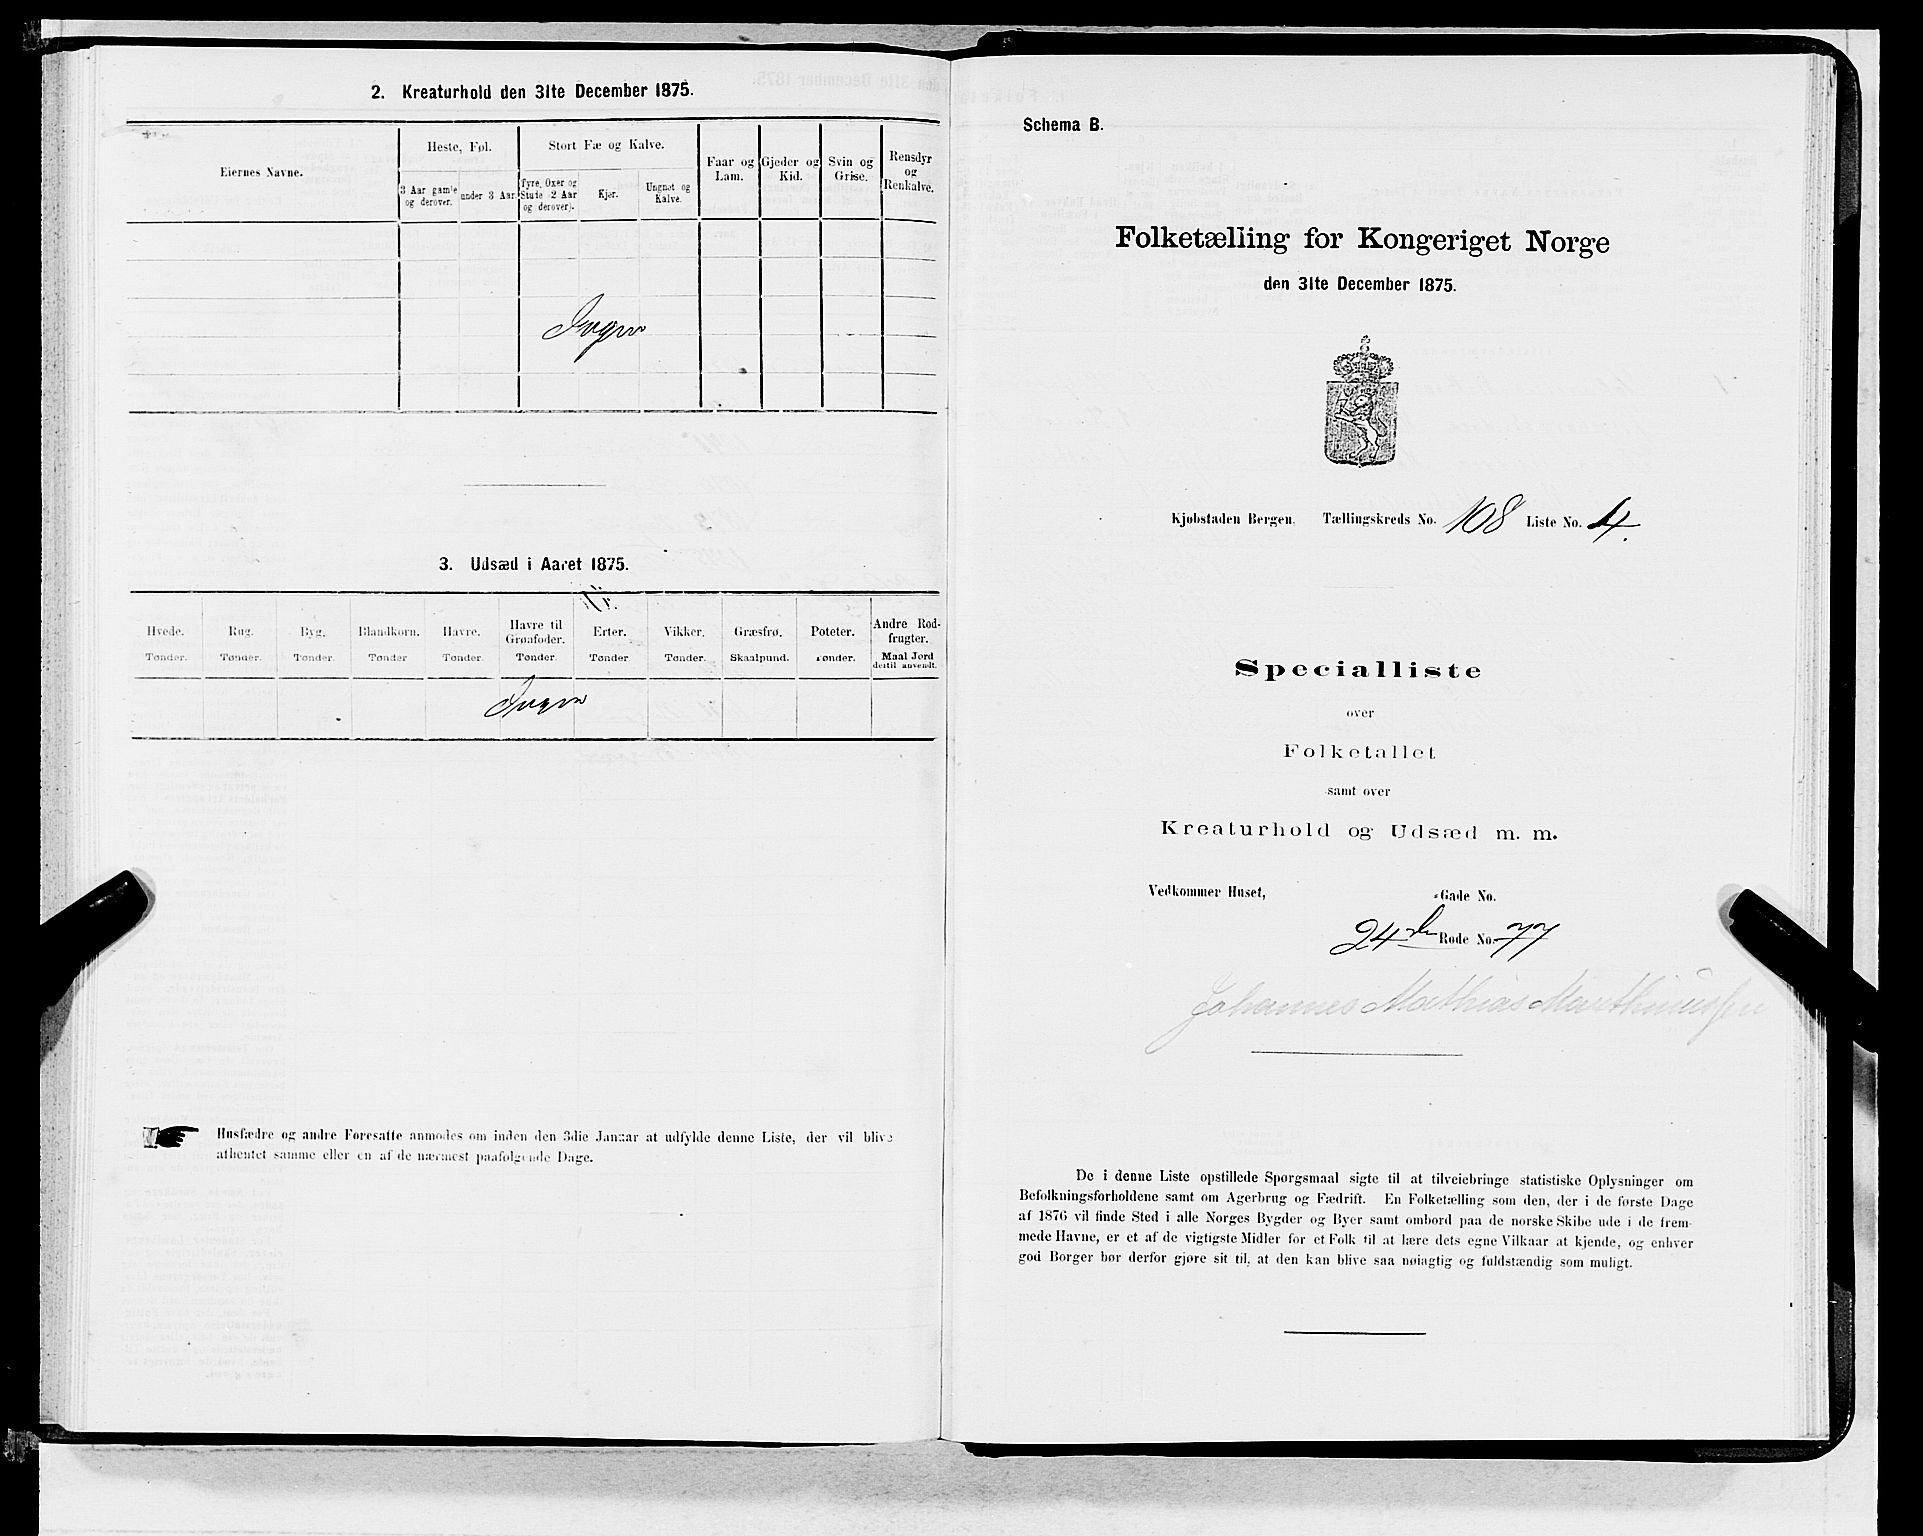 2. Kreaturhold den 31te December 1875.
Eiernes Navne.
Heste, Føl.
Stort Fæ og Kalve.
Faar og Lam.
Gjeder og Kid.
Svin og Grise.
Rensdyr og Renkalve.
3 Aar gamle og derover.
under 3 Aar.
Tyre, Oxer og Stude (2 Aar og derover).
Kjør.
Ungnøt og Kalve.
Ingen
3. Udsæd i Aaret 1875.
Hvede. Rug. Byg. Blandkorn. Havre. Havre til Grønfoder. Erter. Vikker. Græsfrø. Poteter. Andre Rodfrugter.
Tønder. Tønder. Tønder. Tønder Tønder. Tønder. Tønder Tønder. Skaalpund. Tønder. Maal Jord dertil anvendt.
Ingen
Husfædre og andre Foresatte anmodes om inden den 3die Januar at udfylde denne Liste, der vil blive
afhentet samme eller en af de nærmest paafølgende Dage.
Schema B.
Folketælling for Kongeriget Norge
den 31te December 1875.
Kjøbstaden Bergen. Tællingskreds No. 108 Liste No. 4.
Specialliste
over
Folketallet
samt over
Kreaturhold og Udsæd m. m.
Vedkommer Huset, -Gade No.
24de Rode No. 77
Johannes Mathias Marthinussen
De i denne Liste opstillede Spørgsmaal sigte til at tilveiebringe statistiske Oplysninger om
Befolkningsforholdene samt om Agerbrug og Fædrift. En Folketælling som den, der i de første Dage
af 1876 vil finde Sted i alle Norges Bygder og Byer samt ombord paa de norske Skibe ude i de frem-
mede Havne, er et af de vigtigste Midler for et Folk til at lære dets egne Vilkaar at kjende, og enhver
god Borger bør derfor gjøre sit til, at den kan blive saa nøiagtig og fuldstændig som muligt.